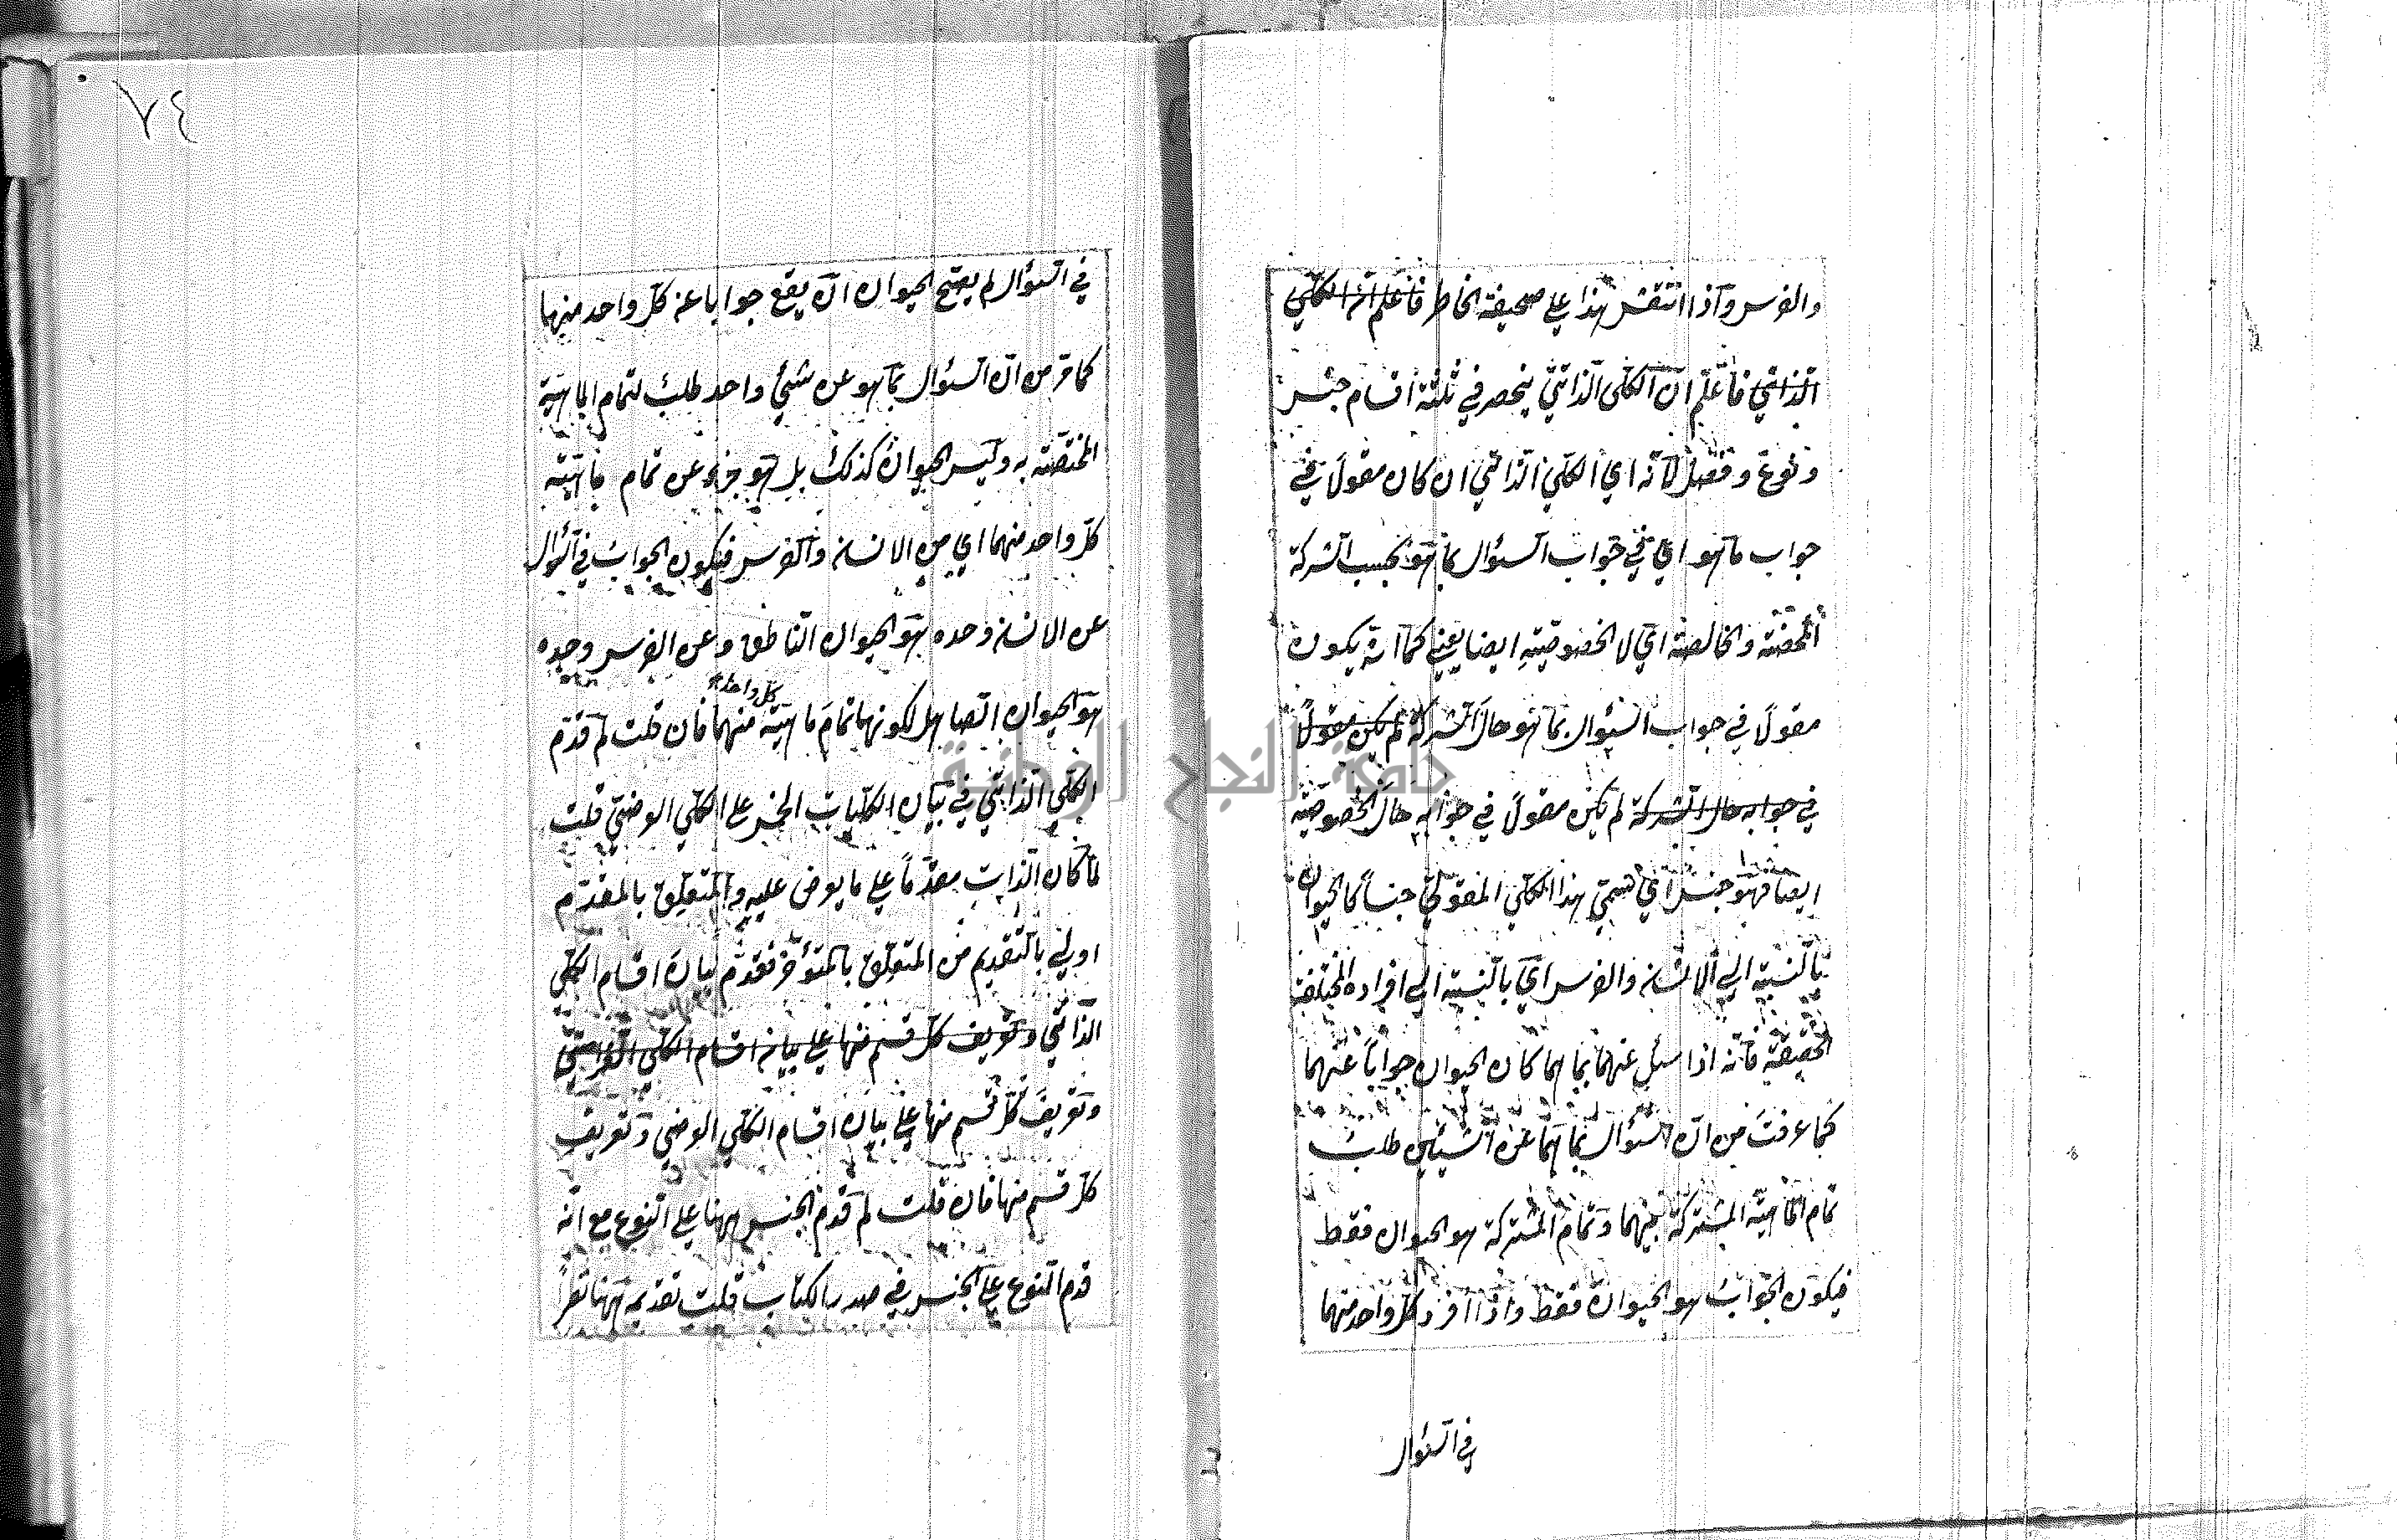 والفرس وإذا انتقش هذا على صحيفة الخاطر فاعلم أن الكلي
الذاتي فاعلم أن الكلي الذاتي ينحصر في ثلثة أقسام جنس
ونوع وفصل لأنه اي الكلي الذاتي ان كان مقولا في
جواب ما هو اي في جواب السؤال بما هو بحسب الشركة
المحضة والخالصة اي لا الخصوصية ايضا يعني كما انه يكون
مقولا في جواب السؤال بما هو حال الشركة لم يكن مقولا
في جوابه حال الشركة لم يكن مقولا في جوابه حال الخصوصية
ايضا فهو جنس اي يسمى هذا الكلي المقولي جنسا كالحيوان
بالنسبة الى الانسان والفرس اي بالنسبة الى افراده المختلفة
الحقيقة فانه اذا سئل عنهما بما هما كان الحيوان جوابا عنهما
كما عرفت من ان السؤال بما هما عن الشيئين طلب
تمام الماهية المشتركة بينهما وتمام المشتركة هو الحيوان فقط
فيكون الجواب هو الحيوان فقط واذا افرد كل واحد منهما
في السؤال
٧٤
في السؤال لم يصح الحيوان ان يقع جوابا عن كل واحد منهما
كما مر من ان السؤال بما هو عن شئ واحد طلب لتمام الماهية
المختصة به وليس الحيوان كذلك بل هو جزء عن تمام ماهية
كل واحد منهما اي من الانسان والفرس فيكون الجواب في السؤال
عن الانسان وحده هو الحيوان الناطق وعن الفرس وحده
هو الحيوان الصاهل لكونهما تمام ماهية كل واحد منهما فان قلت لم قدم
الكلي الذاتي في بيان الكليات الخمس على الكلي العرضي قلت
لما كان الذات مقدما على ما يعرض عليه والمتعلق بالمقدم
اولى بالتقديم من المتعلق بالمتؤخر فقدم بيان اقسام الكلي
الذاتي وتعريف كل قسم منها على بيان اقسام الكلي العرضي
وتعريف كل قسم منها على بيان اقسام الكلي العرضي وتعريف
كل قسم منها فان قلت لم قدم الجنس ههنا على النوع مع انه
قدم النوع على الجنس في صدر الكتاب قلت تقديمه ههنا نظرا
جامعة النجاح الوطنية